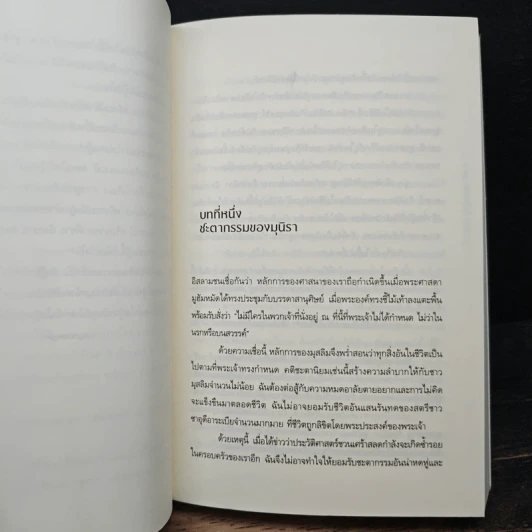 บทที่หนึ่ง
ชะตากรรมของมุนิรา
อิสลามชนเชื่อกันว่า หลักการของศาสนาของเราถือกำเนิดขึ้นเมื่อพระศาสดา
มูฮัมหมัดได้ทรงประชุมกับบรรดาสานุศิษย์ เมื่อพระองค์ทรงชี้ไม้เท้าลงแตะพื้น
พร้อมรับสั่งว่า “ไม่มีใครในพวกเจ้าที่นั่งอยู่ ณ ที่นี้ที่พระเจ้าไม่ได้กำหนด ไม่ว่าใน
นรกหรือบนสวรรค์”
ด้วยความเชื่อนี้ หลักการของมุสลิมจึงพร่ำสอนว่าทุกสิ่งอันในชีวิตเป็น
ไปตามที่พระเจ้าทรงกำหนด คติชะตานิยมเช่นนี้สร้างความลำบากให้กับชาว
มุสลิมจำนวนไม่น้อย ฉันต้องต่อสู้กับความหมดอาลัยตายอยากและการไม่คิด
จะแข็งขืนมาตลอดชีวิต ฉันไม่อาจยอมรับชีวิตอันแสนรันทดของสตรีชาว
ซาอุดีอาระเบียจำนวนมากมาย ที่ชีวิตถูกลิขิตโดยพระประสงค์ของพระเจ้า
ด้วยเหตุนี้ เมื่อได้ข่าวว่าประวัติศาสตร์ชวนเศร้าสลดกำลังจะเกิดซ้ำรอย
ในครอบครัวของเราอีก ฉันจึงไม่อาจทำใจให้ยอมรับชะตากรรมอันน่าหดหู่และ